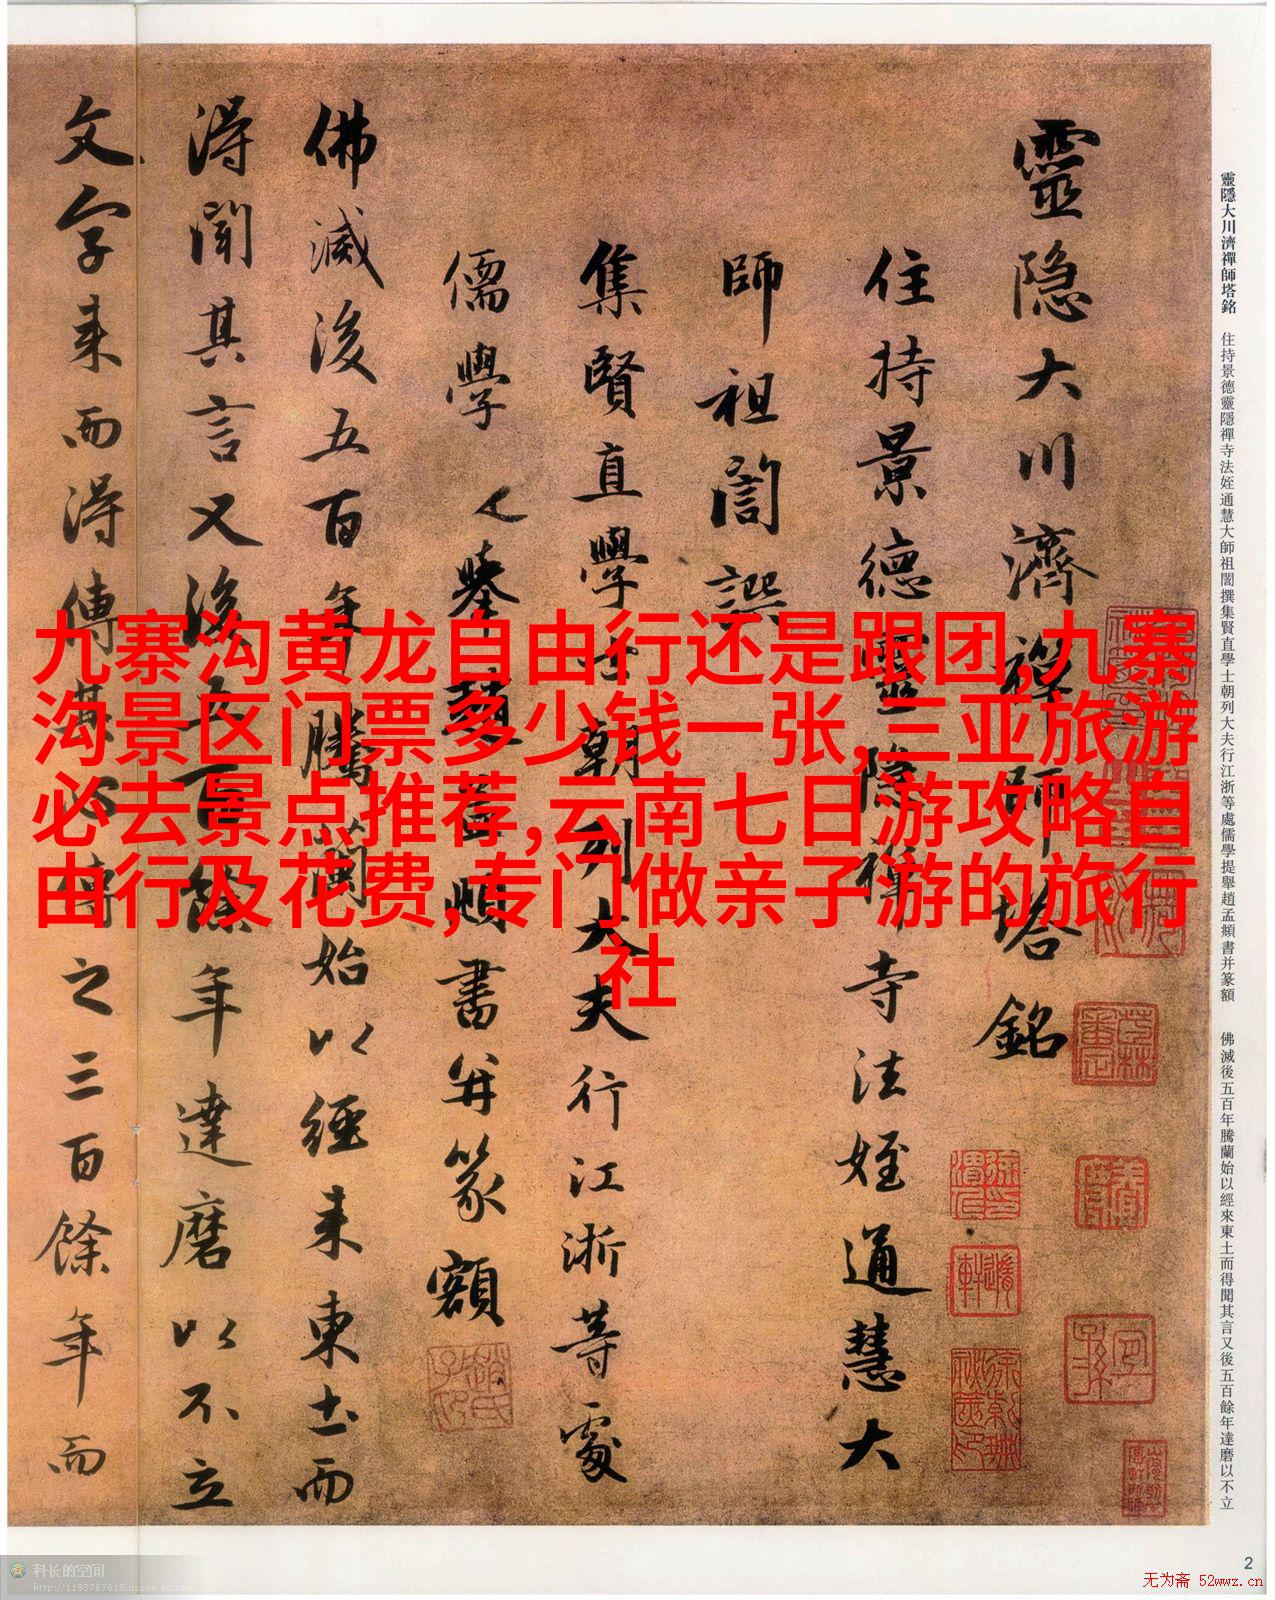 靈隐大川濟禪師塔銘
住持景德靈隐禪寺法姪通慧大
師祖誾譔
集賢直學士朝列大夫行江浙等處
儒學提舉趙孟頫書并篆額
佛滅後五百年騰蘭始以經来東土而
得聞其言又後五百餘年達磨以不立
文字来而得傳其心傳之三百餘年而
靈隱大川濟禪師塔銘 住持景德靈隱禪寺法姪通慧大師祖誾撰集賢直學士朝列大夫行江浙等處儒學提舉趙孟頫書并篆額 佛滅後五百年騰蘭始以經來東土而得聞其言又後五百餘年達磨以不立
九寨沟黄龙自由行还是跟团,九寨
沟景区门票多少钱一张,三亚旅游
必去景点推荐,云南七日游攻略自
由行及花费,专门做亲子游的旅行
社
2
科长的空间
http://1193767618.qzone.qq.com
无为斋 52wwz.cn